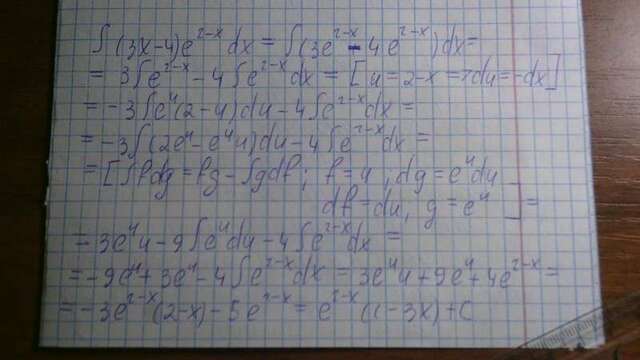 ∫(3x-4)e^{2-x}dx = ∫(3e^{2-x} - 4e^{2-x})dx=
= 3∫e^{2-x} - 4∫e^{2-x}dx = [u=2-x =7du=-dx]
= -3∫e^u(2-u)du - 4∫e^{2-x}dx =
= -3∫(2e^u - e^u u)du - 4∫e^{2-x}dx =
= [∫fdg = fg - ∫gdf; f=u, dg = e^u du
df = du, g = e^u ] =
= 3e^u u - 9∫e^u du - 4∫e^{2-x}dx =
= -9e^u + 3e^u - 4∫e^{2-x}dx = 3e^u u + 9e^u + 4e^{2-x} =
= -3e^{2-x}(2-x) - 5e^{2-x} = e^{2-x}(1-3x)+C